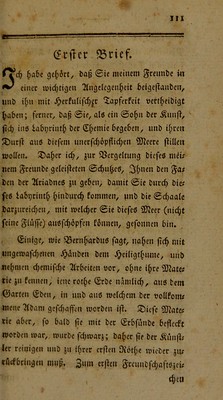 III
Erster Brief.
Ich habe gehört, daß Sie meinem Freunde in
einer wichtigen Angelegenheit beigestanden,
und ihn mit Herkulischer Tapferkeit vertheidigt
haben; ferner, daß Sie, als ein Sohn der Kunst,
sich ins Labyrinth der Chemie begeben, und ihren
Durst aus diesem unerschöpflichen Meere stillen
wollen. Daher ich, zur Vergeltung dieses mei-
nem Freunde geleisteten Schutzes, Ihnen den Fa-
den der Ariadnes zu geben, damit Sie durch die-
ses Labyrinth hindurch kommen, und die Schaale
darzureichen, mit welcher Sie dieses Meer (nicht
seine Flüsse) ausschöpfen können, gesonnen bin.
Einige, wie Bernhardus sagt, nahen sich mit
ungewaschenen Händen dem Heiligthume, und
nehmen chemische Arbeiten vor, ohne ihre Mate-
rie zu kennen, jene rothe Erde nämlich, aus dem
Garten Eden, in und aus welchem der vollkom-
mene Adam geschaffen worden ist. Diese Mate-
rie aber, so bald sie mit der Erbsünde befleckt
worden war, wurde schwarz; daher sie der Künst-
ler reinigen und zu ihrer ersten Röthe wieder zu-
rückbringen muß. Zum ersten Freundschaftszei-
chen